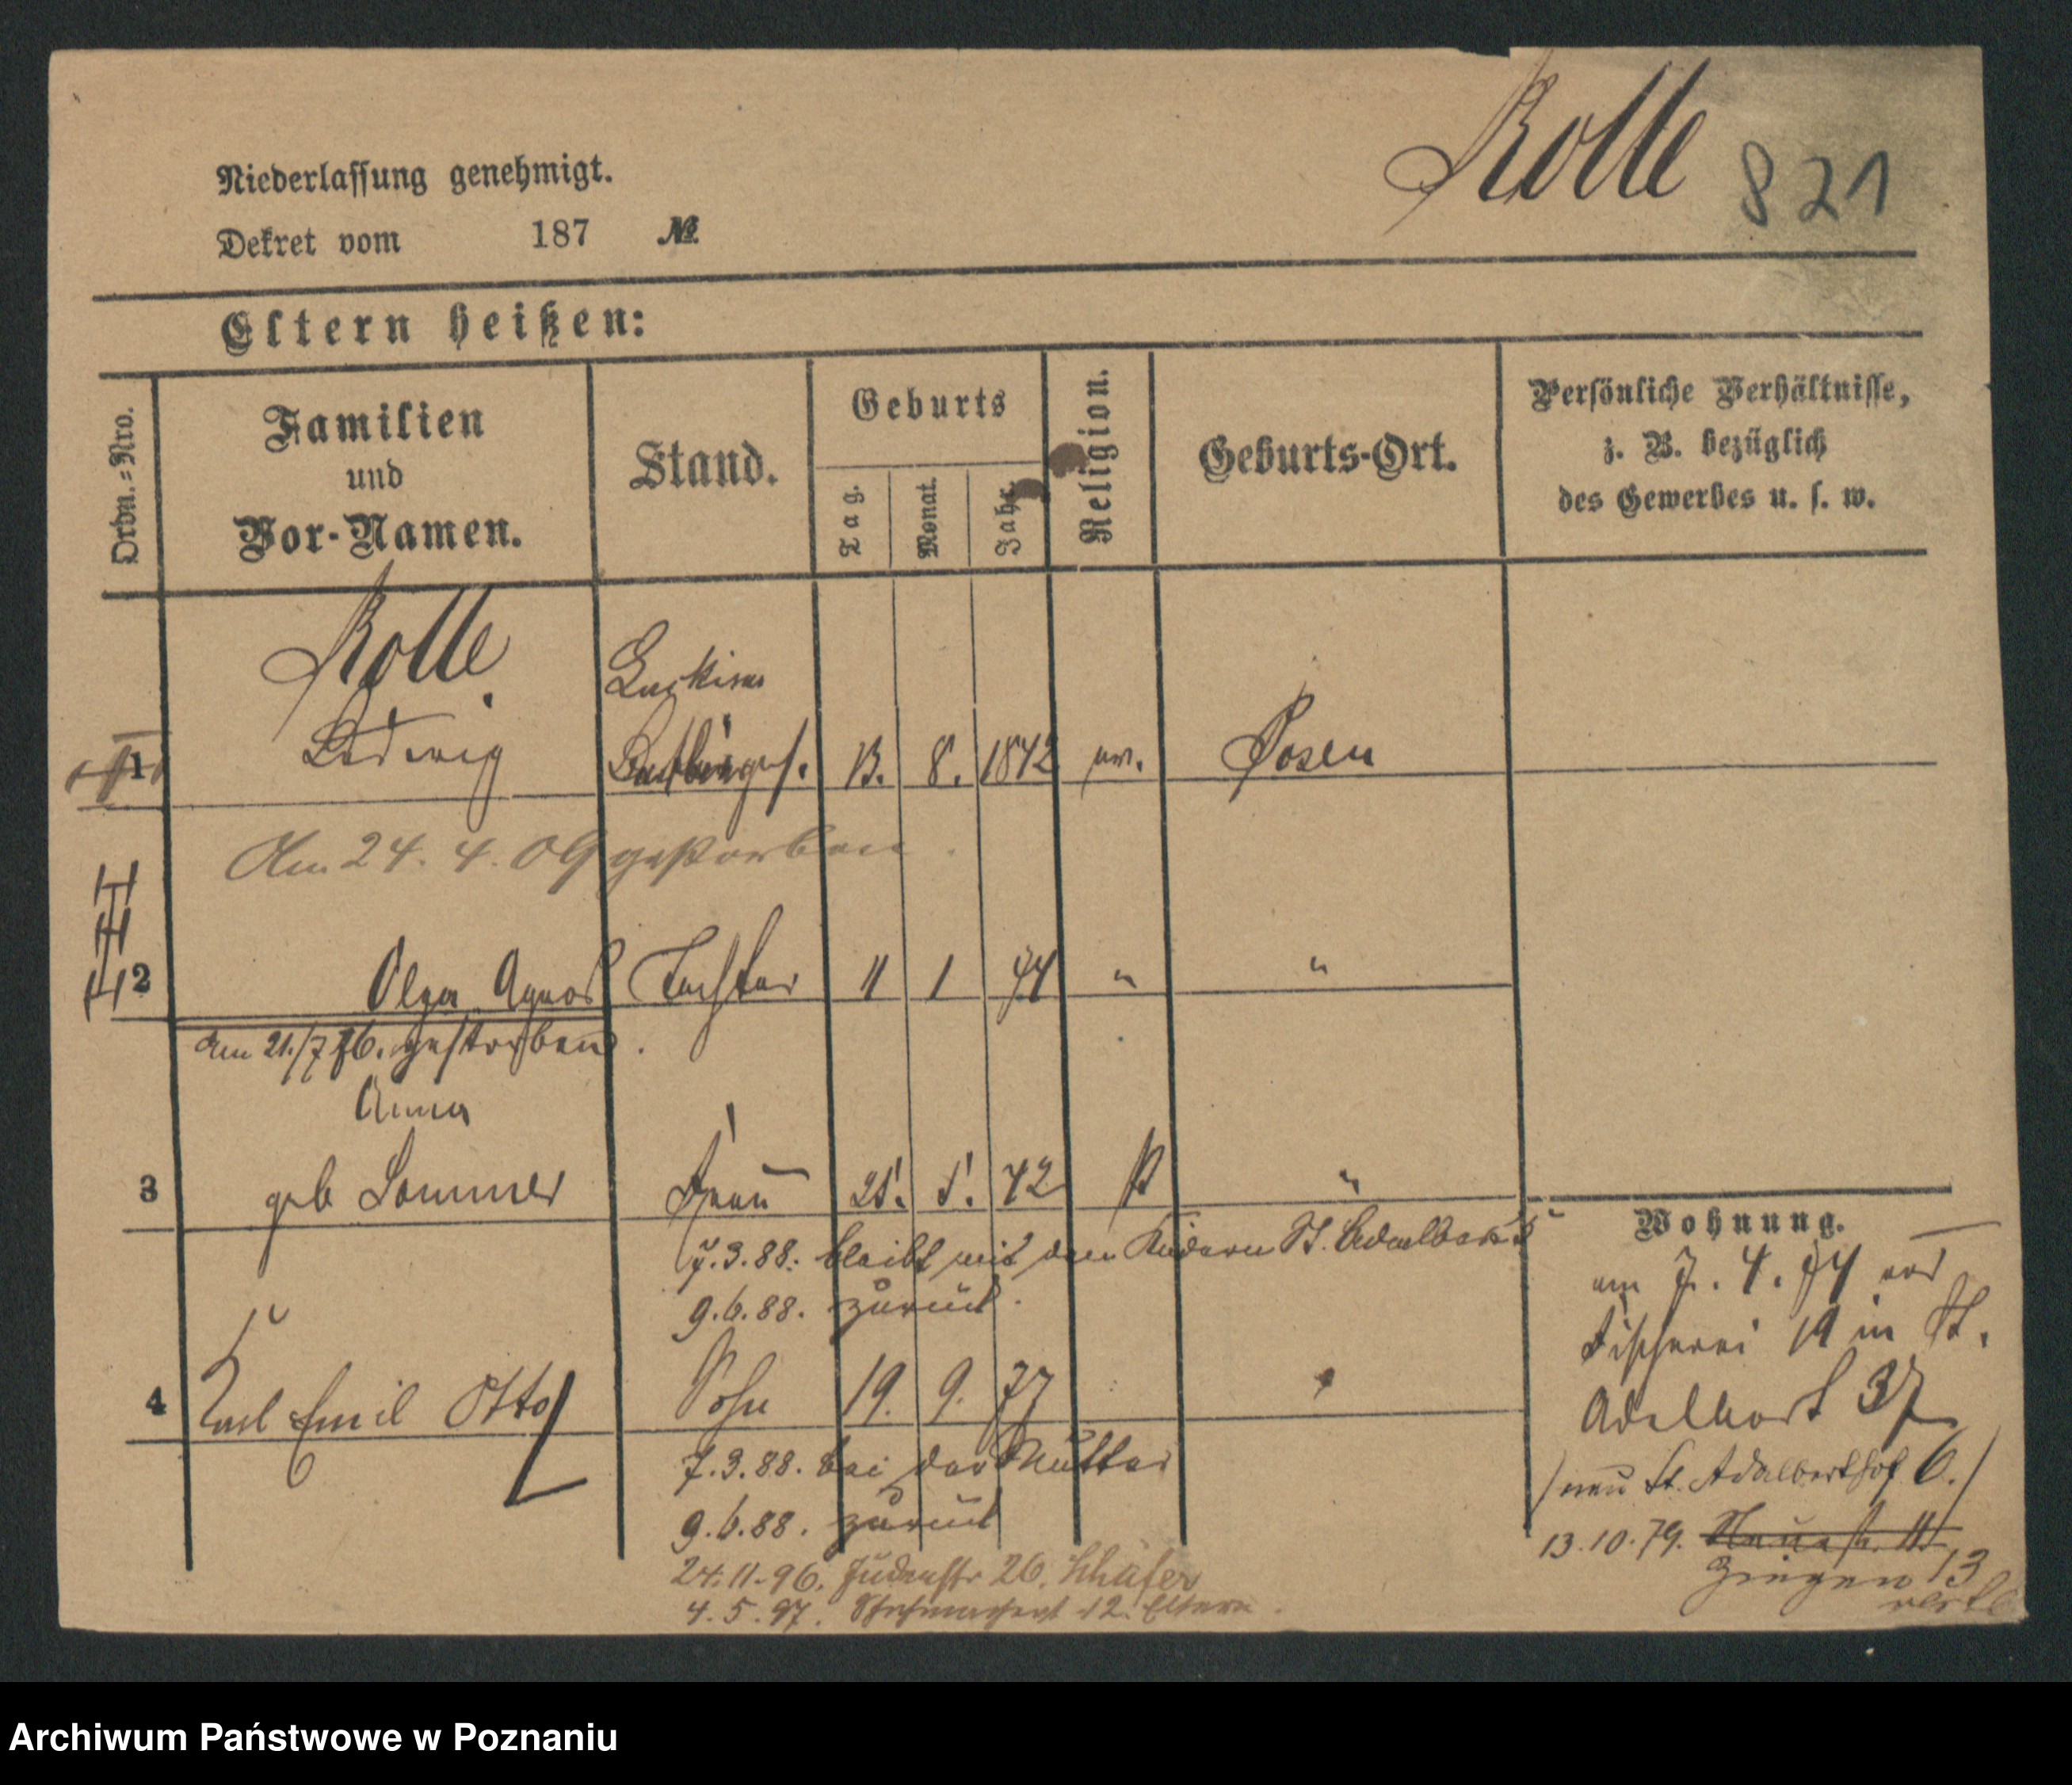 Rolle 821
Niederlassung genehmigt.
Dekret vom 187 №
Eltern heißen:
Ordn.=Nro.
Familien
und
Vor-Namen.
Stand.
Geburts
Tag.
Monat.
Jahr.
Religion.
Geburts-Ort.
Persönliche Verhältnisse,
z. B. bezüglich
des Gewerbes u. s. w.
Rolle
1 Ludwig 13. 8. 1842 ev. Posen
Am 24. 4. 09 gestorben.
2 Olga Agnes Tochter 11 1 74 " "
Am 21./7 76. gestorben.
Anna
3 geb Sommer Frau 25. 5. 42 "
7.3.88. bleibt mit den Kindern St. Adalbert
9.6.88. zurück.
4 Karl Emil Otto Sohn 19. 9. 77
7.3.88. bei der Mutter
9.6.88. zurück
24.11.96. Judenstr 26. Schäfer
4.5.97. 12. Eltern.
Wohnung.
am 7. 4. 74 von
Fischerei 19 in St.
Adelbert 37
/neu St. Adalberthof 6./
13.10.79. Neuestr. 11
13
Archiwum Państwowe w Poznaniu